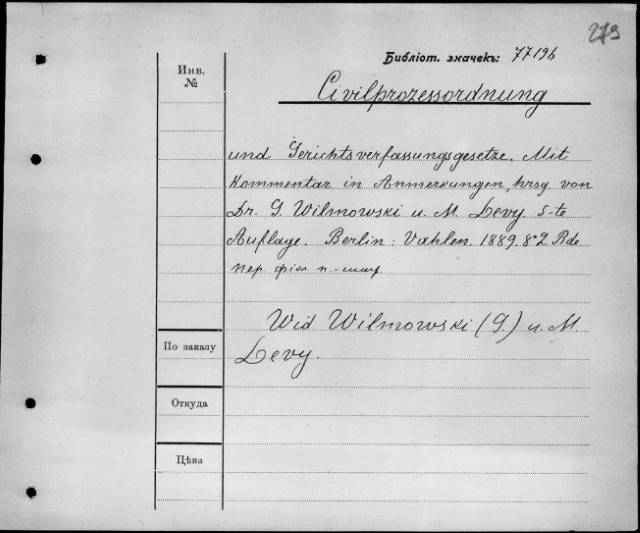 273
Библіот. значекъ: 77196
Инв. №
Civilprozessordnung
und Gerichtsverfassungsgesetze. Mit
Kommentar in Anmerkungen, hrsg von
Dr. G. Wilmowski u. M. Levy. 5-te
Auflage. Berlin: Vahlen. 1889. 8º 2 Bde
пер. фіол п.-шагр.
Wid Wilmowski (G.) u. M.
Levy.
По заказу
Откуда
Цѣна